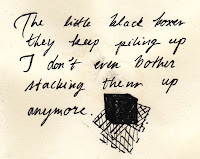 The little black boxes
they keep piling up
I don't even bother
stacking them up
anymore.